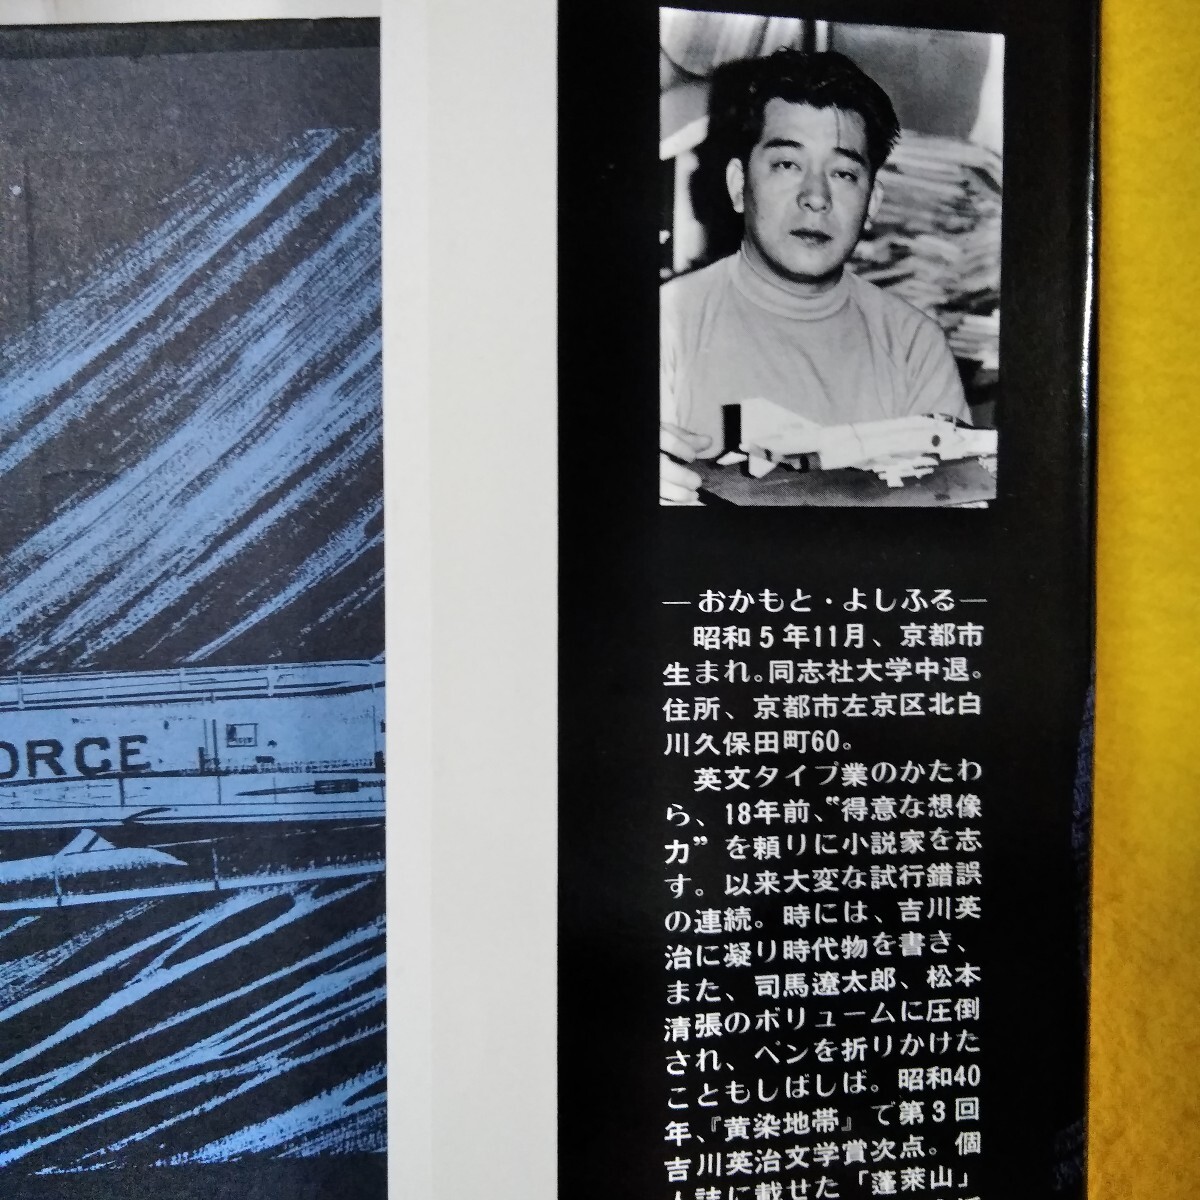 ORCE
―おかもと・よしふる―
昭和5年11月、京都市
生まれ。同志社大学中退。
住所、京都市左京区北白
川久保田町60。
英文タイプ業のかたわ
ら、18年前、“得意な想像
力”を頼りに小説家を志
す。以来大変な試行錯誤
の連続。時には、吉川英
治に凝り時代物を書き、
また、司馬遼太郎、松本
清張のボリュームに圧倒
され、ペンを折りかけた
こともしばしば。昭和40
年、『黄染地帯』で第3回
吉川英治文学賞次点。個
人誌に載せた「蓬莱山」